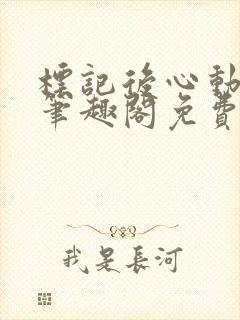 標記後心動
筆趣閣免費
我是長河